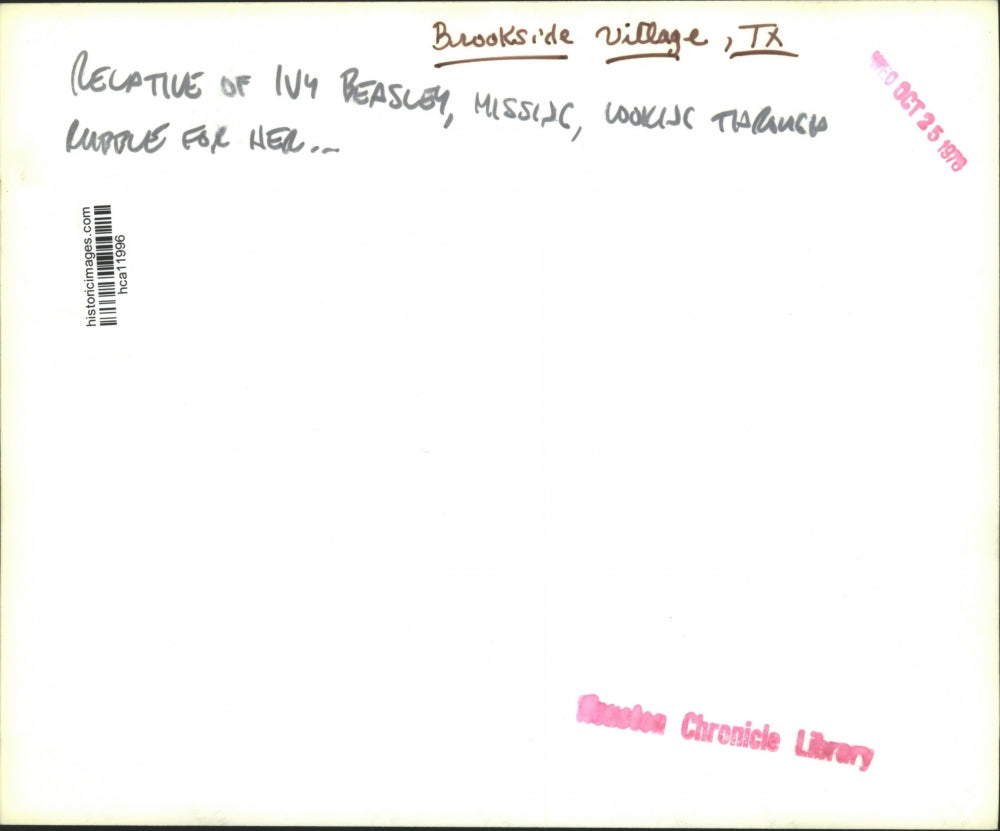 Brookside Village, TX
WED OCT 25 1978
RELATIVE OF IVY BEASLEY, MISSING, LOOKING THROUGH
RUBBLE FOR HER...
historicimages.com
hca11996
Houston Chronicle Library